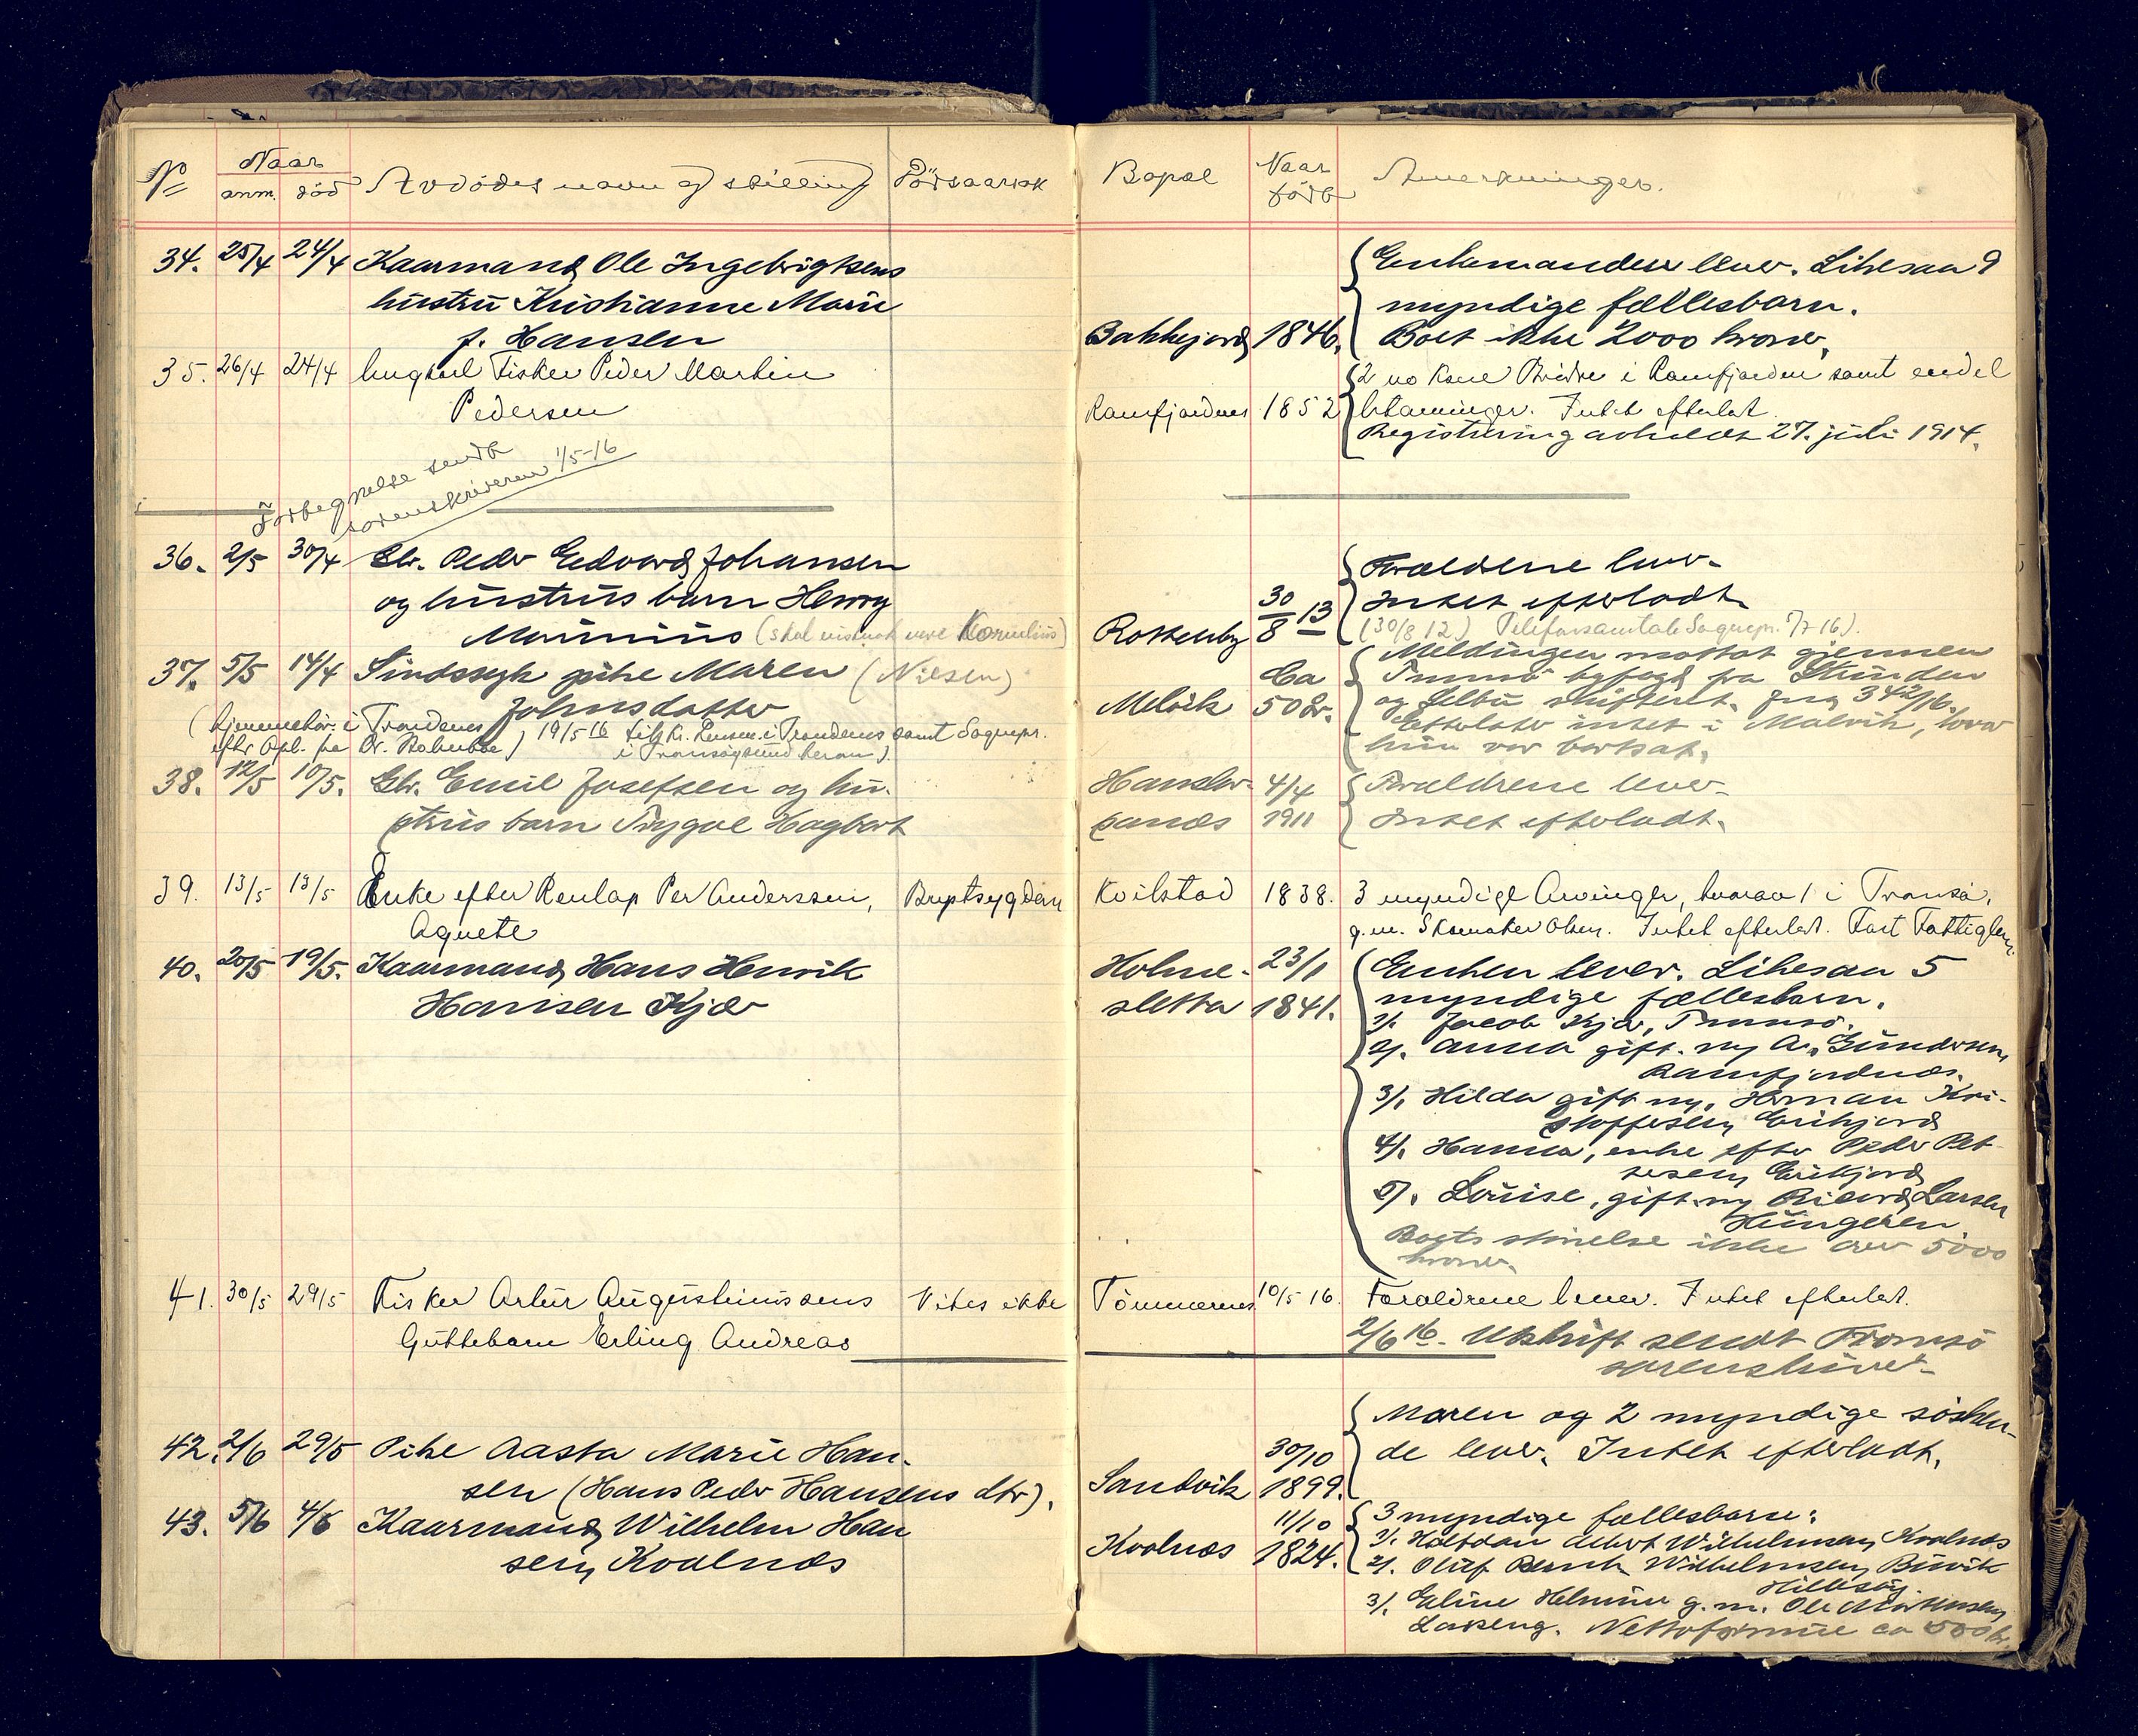 No Naar Avdödes navn og stilling Dödsaarsak
anm. död
34. 25/4 24/4 Kaarmand Ole Ingebrigtsens
hustru Kristianne Marie
f. Hansen
35. 26/4 24/4 Ungkarl Fisker Peder Martin
Pedersen
Fortegnelse sendt
sorenskriveren 1/5-16
36. 2/5 30/4 Gbr. Peder Edvard Johansen
og hustrus barn Henry
(skal være Kornelius)
37. 5/5 14/4 Sindssyk pike Maren (Nilsen)
Johnsdatter
(Hjemmehör. i Trondenes 19/5 16 i Trondenes samt Sagnepr.
efter Opl. fra Dr.
38. 12/5 10/5. Gbr. Emil Josefsen og hu-
strus barn Trygve Hagbart
39. 13/5 13/5 Enke efter Renlap Per Anderssen, Brystsygdom
Agnete
40. 20/5 19/5. Kaarmand Hans Henrik
Hansen Kjær
41. 30/5 29/5 Fisker Artur Augustinussens Vites ikke
Guttebarn Erling Andreas
42. 2/6 29/5 Pike Aasta Marie Han-
sen (Hans Peder Hansens dtr).
43. 5/6 4/6 Kaarmand Wilhelm Han
sen, Kvalnes
Bopæl Naar Anmerkninger.
född
Enkemanden lever. Likesaa 9
myndige fællesbarn.
Bakkejord 1846. Boet ikke 2000 kroner.
2 Brödre i Ramfjorden samt endel
Ramfjordnes 1852 Intet efterlat.
Registrering avholdt 27. juli 1914.
Forældrene lever
30 Intet efterladt
8 13 (30/8 12) Telefonsamtale Sagnepr. 1/7 16).
Meldingen mottat gjennem
Ca Tromsö byfogd fra
Melvik 50 år. og Selbu skifteret. Jnr 342/16.
Efterlater intet i Malvik, hvor
hun var bortsat.
4/4 Forældrene lever
1911 Intet efterladt.
Kvilstad 1838. 3 myndige Arvinger, hvorav 1 i Tromsö,
g.m. Skomaker Olsen. Intet efterlat. Fart Fattiglem
Holme- 23/1 Enken lever. Likesaa 5
sletta 1841. myndige fællesbarn.
1/. Jacob Kjær, Tromsö.
2/. Anna gift m/ A. Gundersen,
Ramfjordnes.
3/. Hilda gift m/. Herman Kri-
stoffersen, Erikjord
4/. Hanna, enke efter Peder Pet-
tersen, Erikjord
5/. Louise, gift m/ Rikard Larsen
Hungeren
Boets størrelse ikke over 5000
kroner.
Tömmernes 10/5 16. Forældrene lever. Intet efterlat.
2/6 16. Utskrift sendt Tromsö
sorenskriver
Moren og 2 myndige sösken-
30/10 de lever. Intet efterladt.
Sandvik 1899.
11/10 3 myndige fællesbarn:
Kvalnes 1824. 1/. Halfdan Albert Wilhelmsen, Kvalnes
2/. Oluf Bernh. Wilhelmsen, Buvik
Hillesöy.
3/. Eline Helmine g.m. Ole Mortensen,
Lakseng. Nettoformue ca 500 kr.